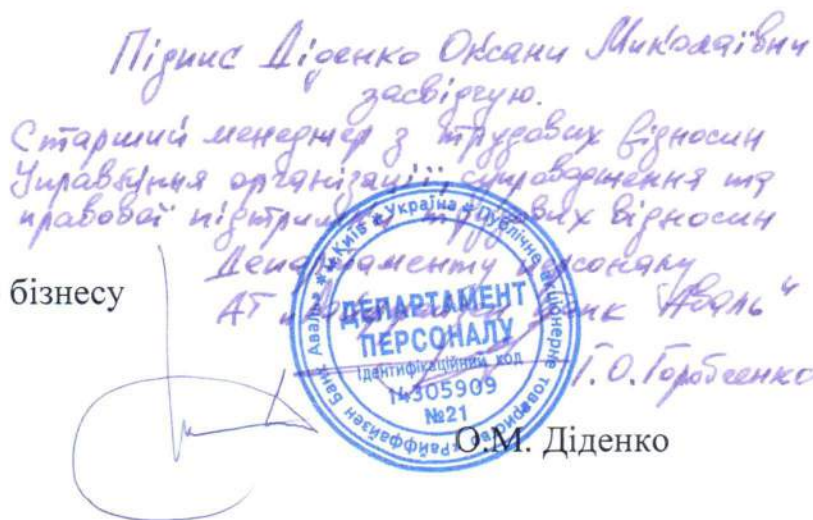 Підпис Діденко Оксани Миколаївни
засвідчую.
Старший менеджер з трудових відносин
Управління організації, супроводження та
правової підтримки трудових відносин
Департаменту персоналу
бізнесу
АТ „Райффайзен Банк "Аваль"
Т.О.
О.М. Діденко
* м.Київ * Україна * Публічне акціонерне товариство «Райффайзен Банк Аваль»
ДЕПАРТАМЕНТ
ПЕРСОНАЛУ
Ідентифікаційний код
14305909
№21